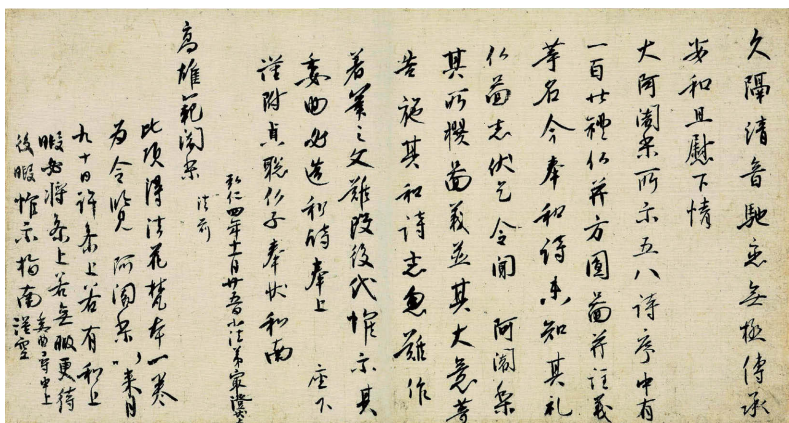 久隔清音馳恋無極傳承
安和且慰下情
大阿闍梨所示五八詩序中有
一百廿礼仏并方圓圖并註義
等名今奉和詩未知其礼
仏圖者伏乞令聞 阿闍梨
其所撰圖義并其大意等
告施其和詩者忽難作
著筆之文難改後代惟示其
委曲必造和詩奉上 座下
謹附貞聡仏子奉状和南
弘仁四年十一月廿五日小法弟最澄状上
高雄範闍梨 法前
此頃得法花梵本一巻
為令覧 阿闍梨以来月
九十日許参上若有和上
暇必将参上若無暇更待
後暇惟示指南 謹空
委曲尋申上